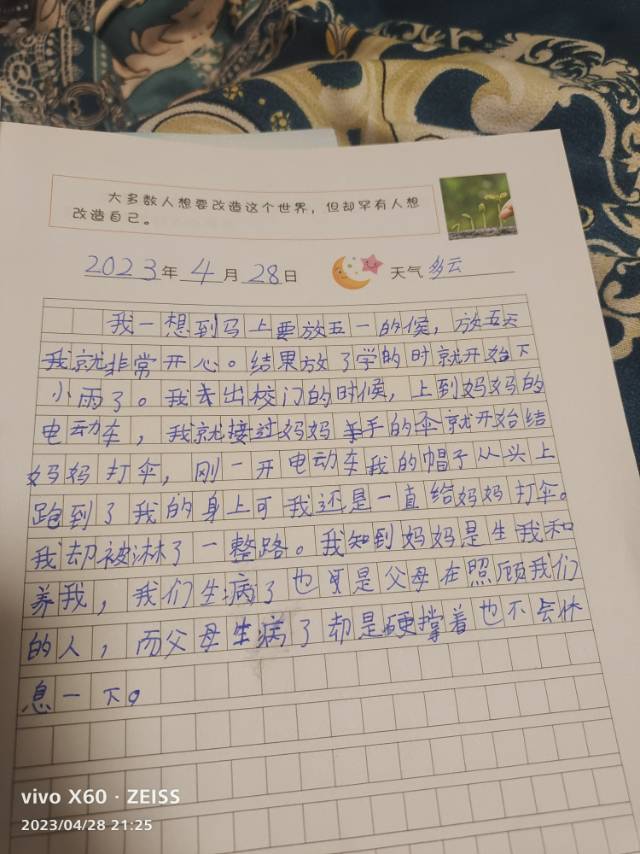 大多数人想要改造这个世界，但却罕有人想
改造自己。
2023年 4月 28日 天气 多云
我一想到马上要放五一的候，放五天
我就非常开心。结果放了学的时就开始下
小雨了。我走出校门的时候，上到妈妈的
电动车，我就接过妈妈手的伞就开始结
妈妈打伞，刚一开电动车我的帽子从头上
跑到了我的身上可我还是一直给妈妈打伞。
我却被淋了一整路。我知到妈妈是生我和
养我，我们生病了也更是父母在照顾我们
的人，而父母生病了却是硬撑着也不会休
息一下。
vivo X60 · ZEISS
2023/04/28 21:25